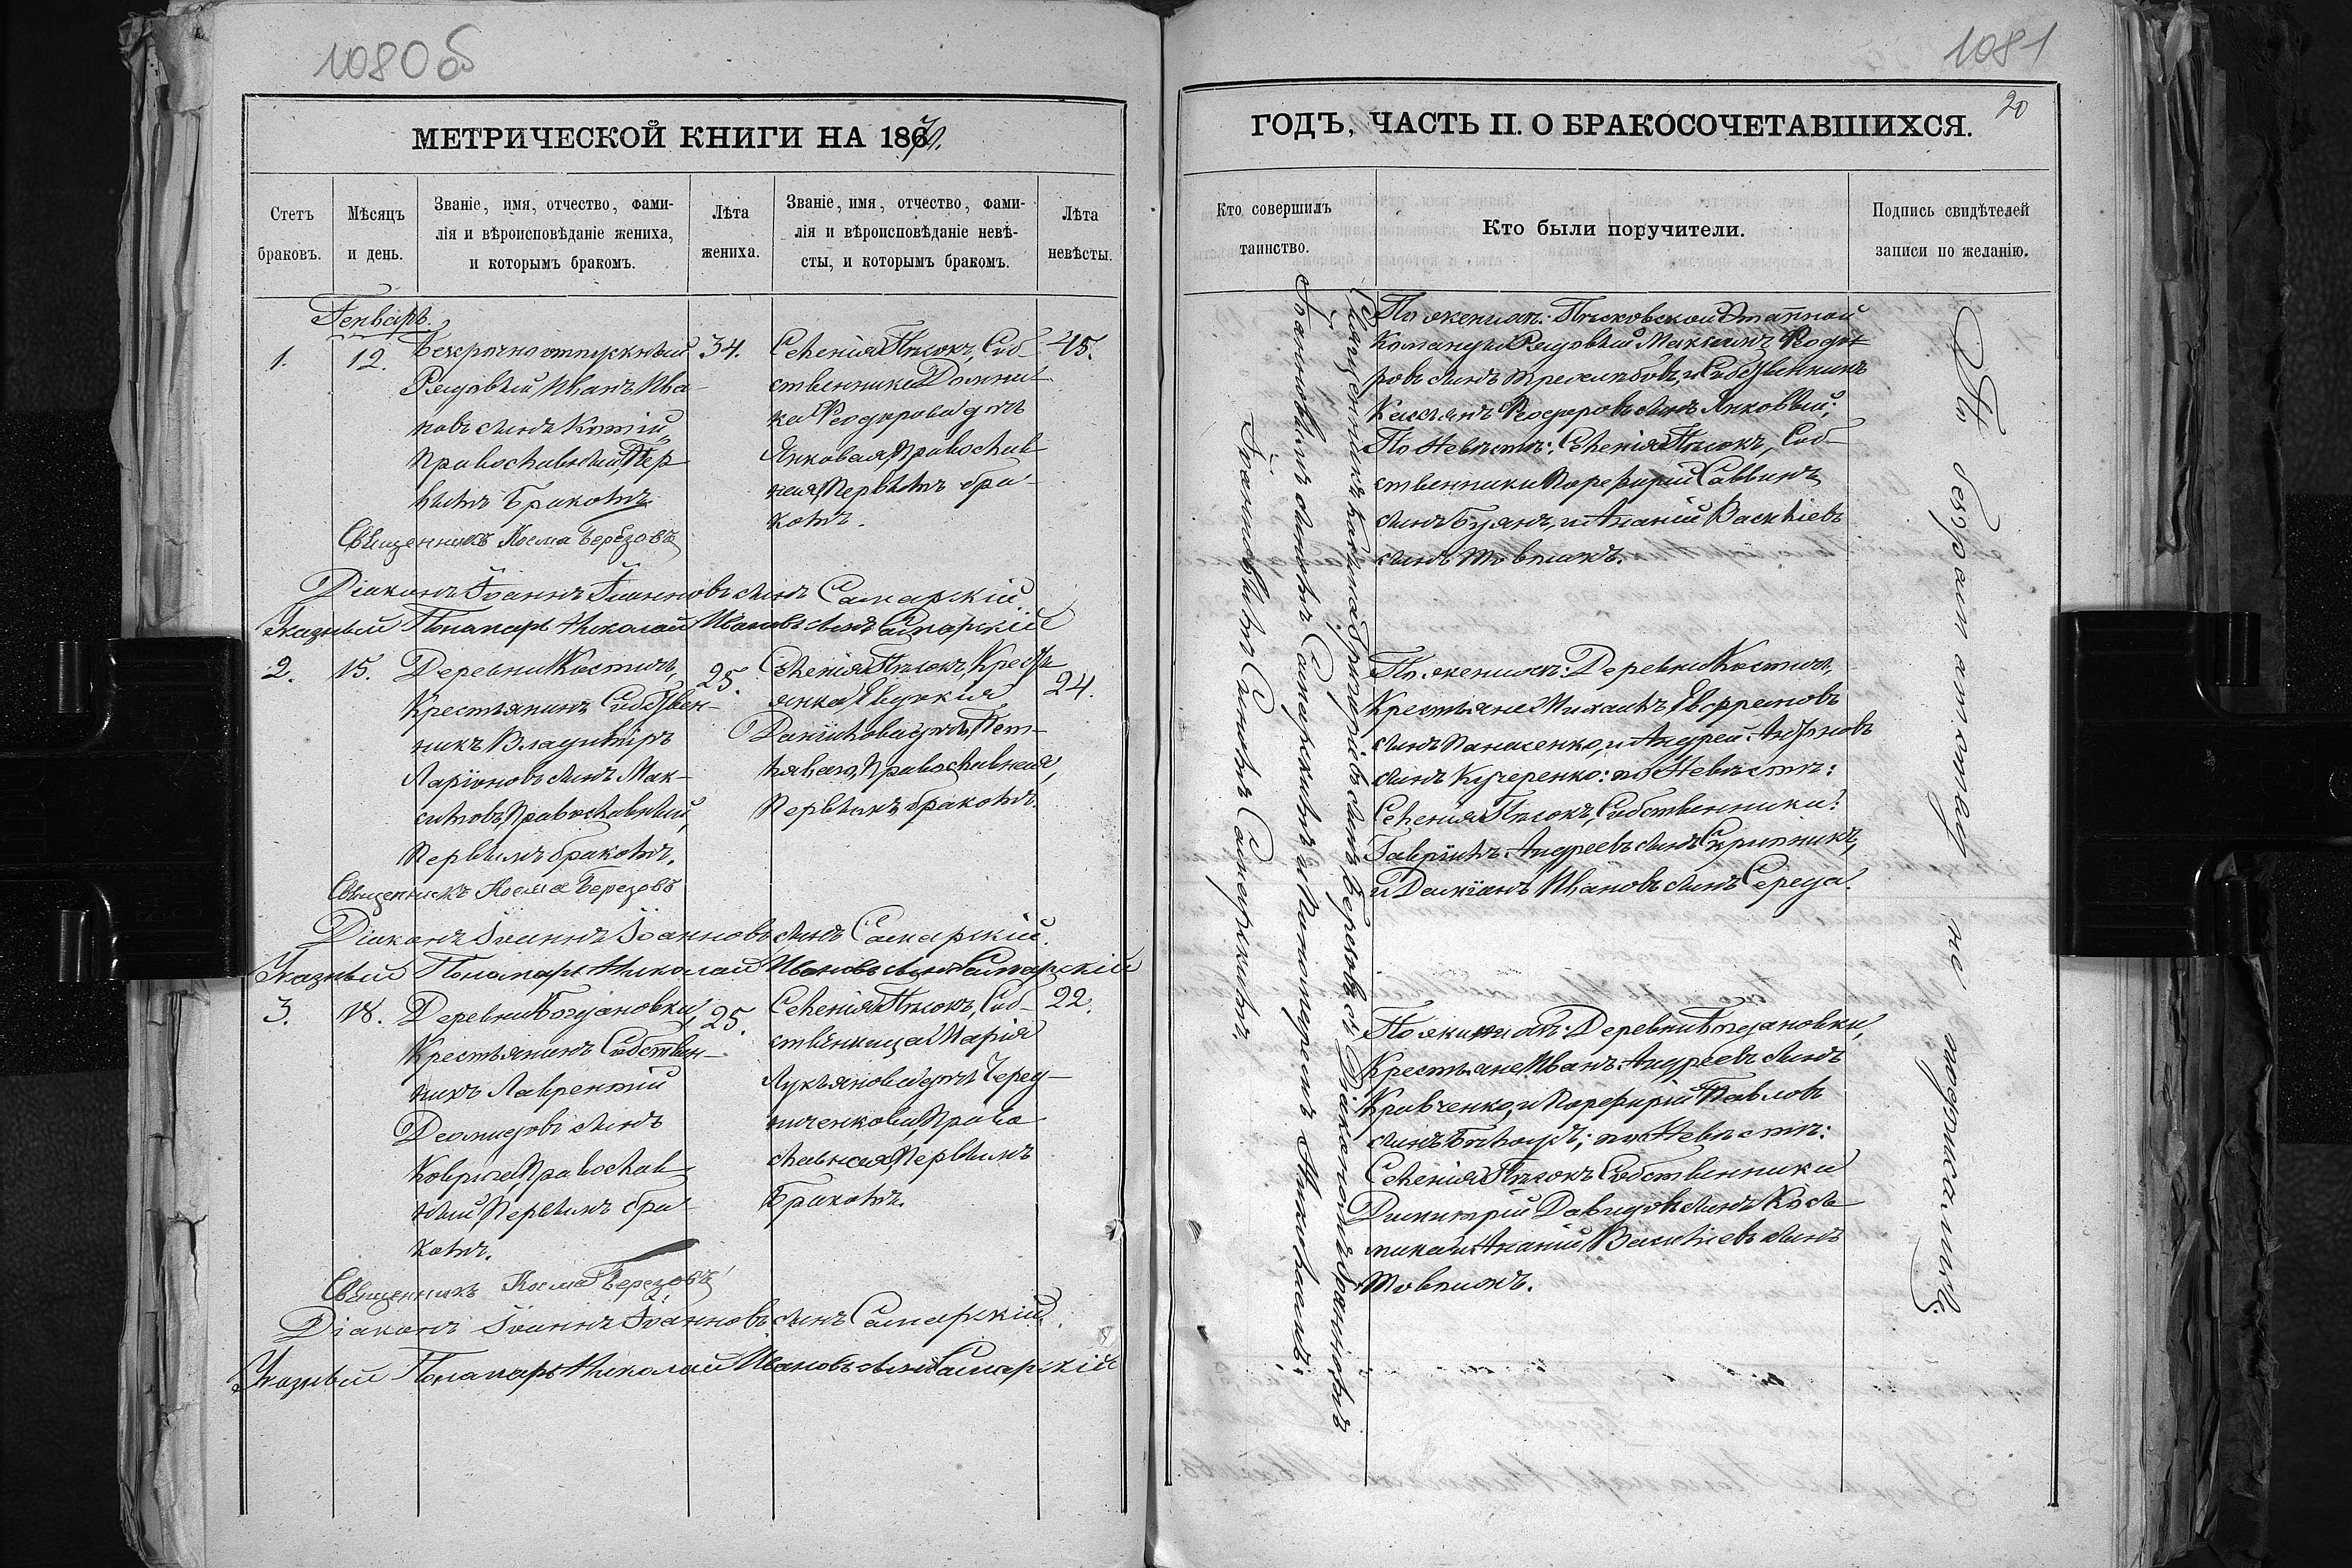 1080об
МЕТРИЧЕСКОЙ КНИГИ НА 1870.
Счетъ браковъ.
Мѣсяцъ и день.
Званіе, имя, отчество, фами-
лія и вѣроисповѣданіе жениха,
и которымъ бракомъ.
Лѣта жениха.
Званіе, имя, отчество, фами-
лія и вѣроисповѣданіе невѣ-
сты, и которымъ бракомъ.
Лѣта невѣсты.
Генварь.
1.
12.
Безсрочно отпускный
Рядовый Иванъ Ива-
новъ сынъ
Православный, Пер
вымъ Бракомъ
34.
Селенія Пѣсокъ, Соб-
ственника Домни-
ка Феодорова дочь
Янковая, Православ
ная, Первымъ бра-
комъ.
45.
Священникъ Косма Березовъ
Діаконъ Іоаннъ Іоанновъ сынъ Самарскій.
Указный Пономарь Николай Ивановъ сынъ Самарскій
2.
15.
Деревни Костича,
Крестьянинъ Собствен-
никъ Владиміръ
Ларіоновъ сынъ Мак-
симовъ, Православный,
Первымъ бракомъ.
25.
Селенія Пѣсокъ, Кресть
янка Евдокія
Даніилова дочь
Православная,
Первымъ бракомъ.
24.
Священникъ Косма Березовъ
Діаконъ Іоаннъ Іоанновъ сынъ Самарскій.
Указный Пономарь Николай Ивановъ сынъ Самарскій
3.
18.
Деревни Богдановки,
Крестьянинъ Собствен-
никъ Лаврентій
Деомидовъ сынъ
Коврыга, Православ
ный, Первымъ бра-
комъ.
25.
Селенія Пѣсокъ, Соб-
ственница Марія
Лукьянова дочь Черед-
ниченкова, Право
славная, Первымъ
Бракомъ.
22.
Священникъ Косма Березовъ
Діаконъ Іоаннъ Іоанновъ сынъ Самарскій.
Указный Пономарь Николай Ивановъ сынъ Самарскій
1081
20
ГОДЪ, ЧАСТЬ II. О БРАКОСОЧЕТАВШИХСЯ.
Кто совершилъ таинство.
Кто были поручители.
Подпись свидѣтелей записи по желанію.
Священникъ Косма Григоріевъ сынъ Березовъ съ Діакономъ Іоанномъ
Іоанновымъ сыномъ Самарскимъ и Пономаремъ Николаемъ
Іоанновымъ Сыномъ Самарскимъ
По женихѣ: Пѣсковской Этапной
Команды Рядовый Максимъ Федо
ровъ сынъ и Собственникъ
Касьянъ Феодоровъ сынъ Янковый;
По Невѣстѣ: Селенія Пѣсокъ, Соб-
ственники Порфирій Саввинъ
сынъ Буянъ, и Ананій Васильевъ
сынъ Товпыжъ.
По женихѣ: Деревни Костича,
Крестьяне Михаилъ Евфремовъ
сынъ Панасенко, и Андрей Антоновъ
сынъ Кучеренко: по Невѣстѣ:
Селенія Пѣсокъ, Собственники:
Гавріилъ Андреевъ сынъ Скрипникъ,
и Даміанъ Ивановъ сынъ Середа.
По женихѣ: Деревни Богдановки,
Крестьяне Иванъ Андреевъ сынъ
Кравченко, и Порфирій Павловъ
сынъ Бѣлоусъ; по Невѣстѣ:
Селенія Пѣсокъ Собственники
Димитрій Давидовъ сынъ
и Ананій Васильевъ сынъ
Товпыжъ.
По безграмотству не подписались.